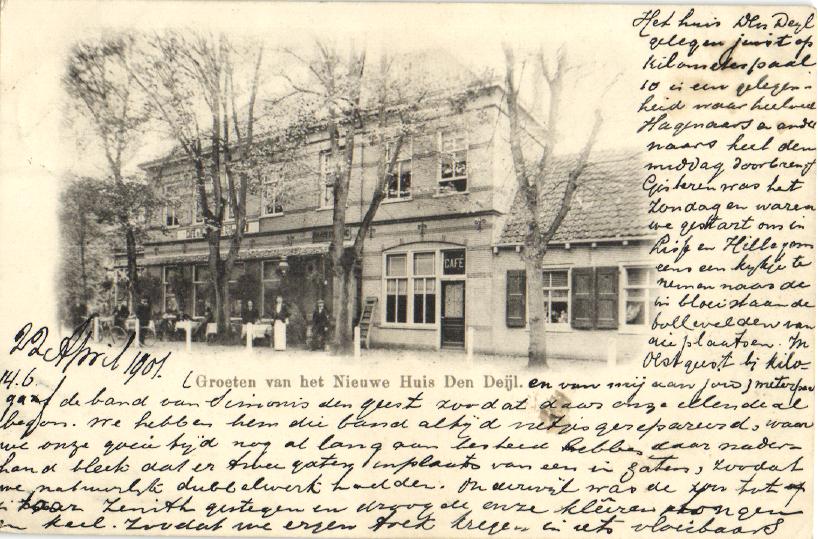 Het huis Den Deyl
gelegen juist op
kilometerpaal
10 is een gelegen-
heid waar heelwat
Hagenaars en ande
naars heel den
middag doorbreng
Gisteren was het
Zondag en waren
we gestart om in
Lisse en Hillegom
eens een kijkje te
nemen naar de
in bloei staande
bollevelden van
die plaatsen. In
Oestgeest bij kilo-
CAFÉ
22 April 1901.
(Groeten van het Nieuwe Huis Den Deijl. en van mij aan jou) meterpaal
14.6.
gaf de band van Simonis den geest zoodat daar onze ellende al
begon. We hebben hem die band altijd netjes gerepareerd, waar
we onze goeie tijd nog al lang aan besteed hebben daar nader-
hand bleek dat er twee gaten, inplaats van een in zaten, zoodat
we natuurlijk dubbelwerk hadden. Onderwijl was de zon tot op
haar Zenith gestegen en droogde onze kleeren tongen
en keel. Zoodat we ergen trek kregen in iets vloeibaars